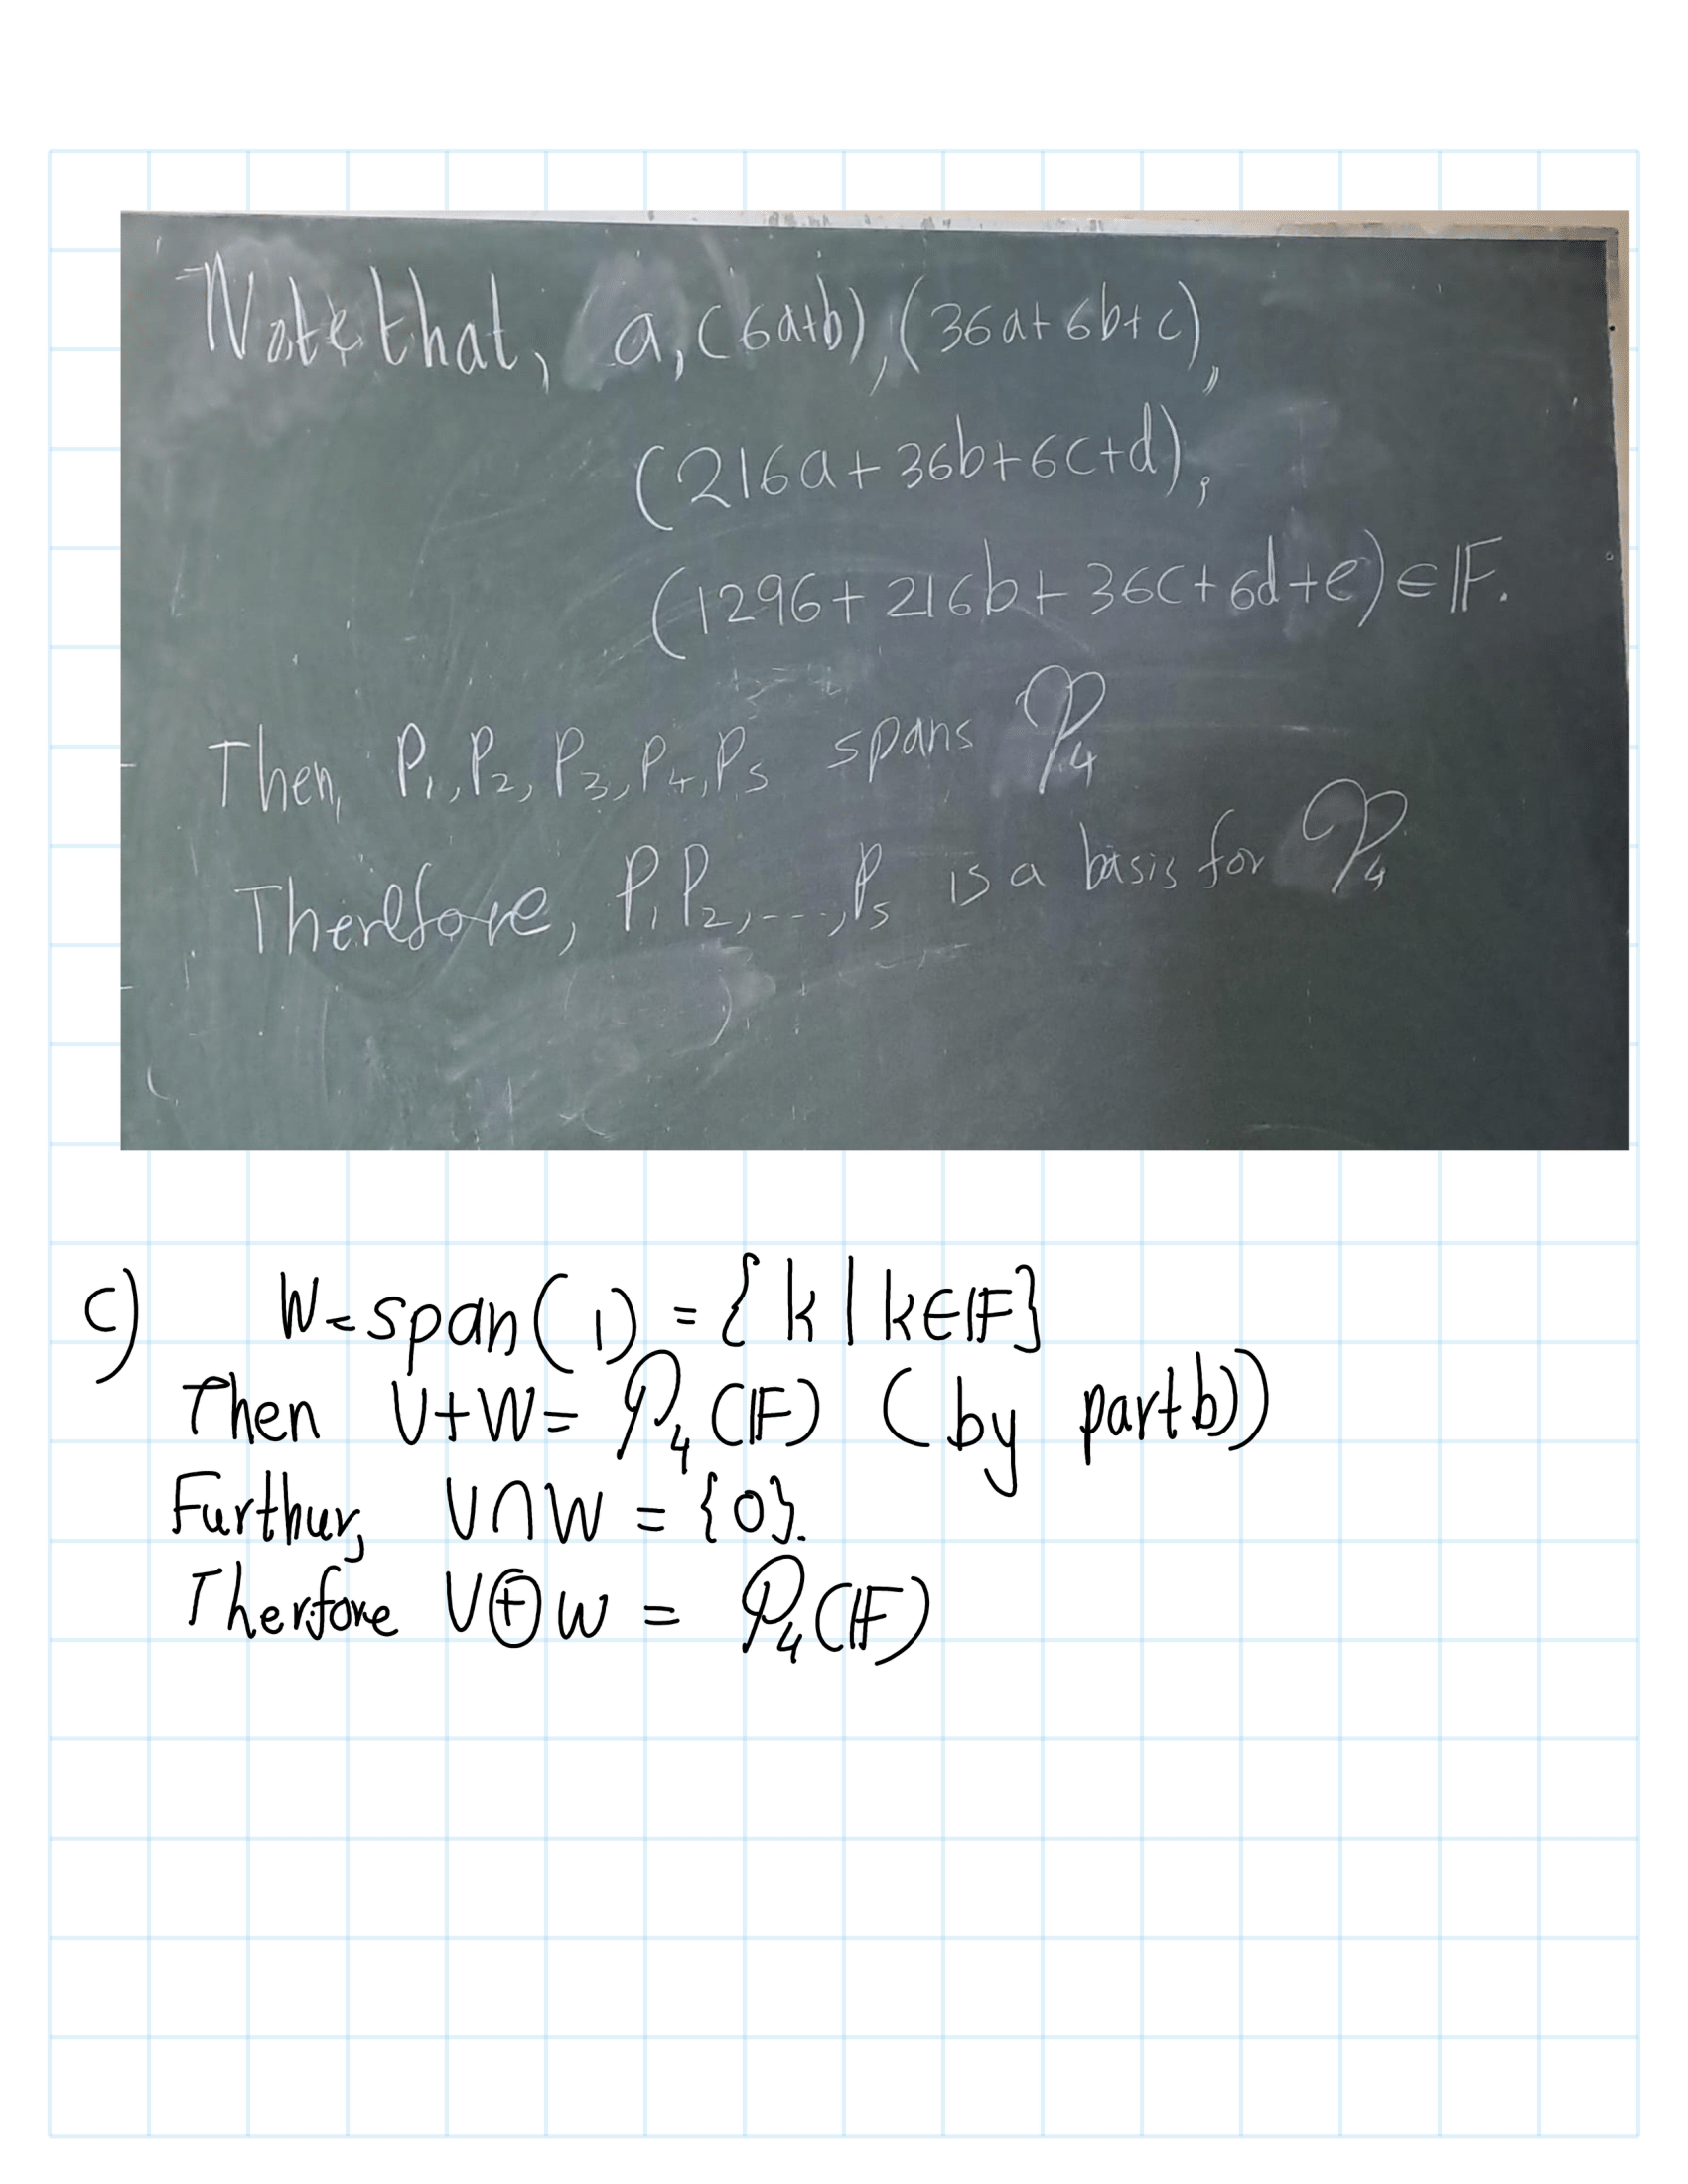 Note that, a, (6a+b), (36a+6b+c),
(216a+36b+6c+d),
(1296+216b+36c+6d+e)∈𝔽.
Then, P₁, P₂, P₃, P₄, P₅ spans 𝒫₄
Therefore, P₁, P₂, ---, P₅ is a basis for 𝒫₄
c) W=span(1) = {k | k∈𝔽}
Then U+W= 𝒫₄(𝔽) (by part b))
Furthur, U∩W = {0}.
Therfore U⊕W = 𝒫₄(𝔽)